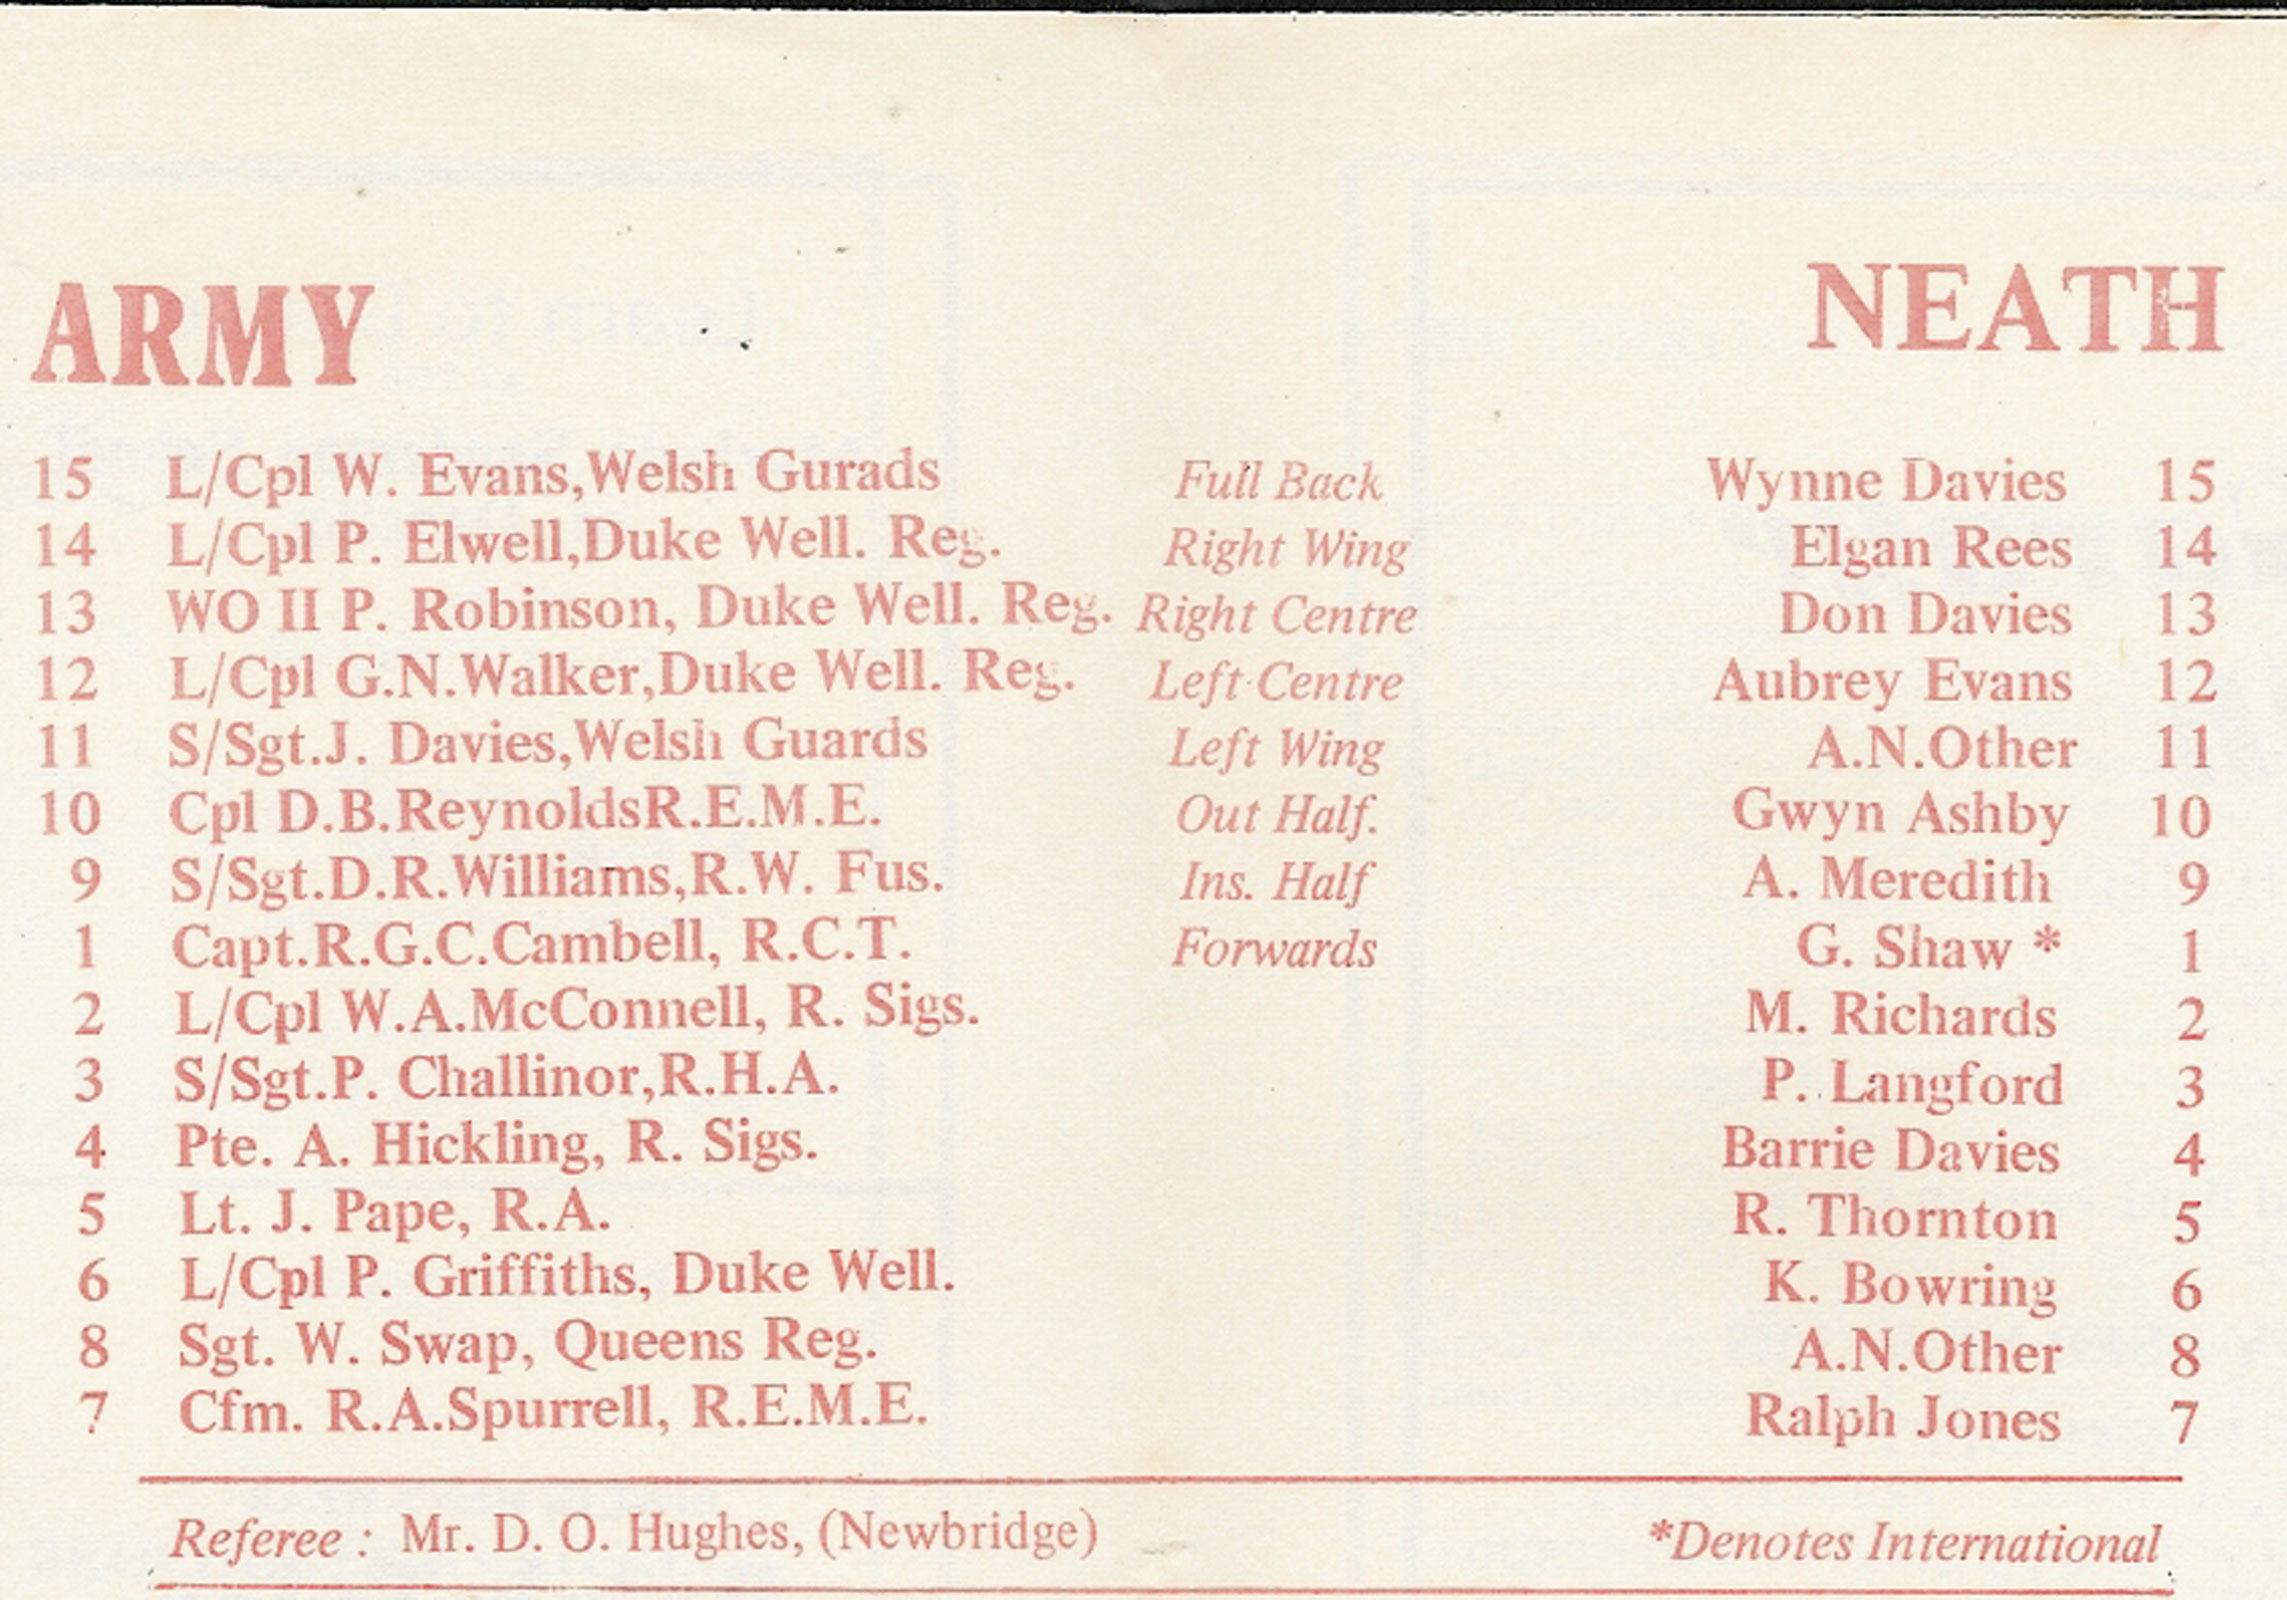 ARMY NEATH
15 L/Cpl W. Evans,Welsh Gurads Full Back Wynne Davies 15
14 L/Cpl P. Elwell,Duke Well. Reg. Right Wing Elgan Rees 14
13 WO II P. Robinson, Duke Well. Reg. Right Centre Don Davies 13
12 L/Cpl G.N.Walker,Duke Well. Reg. Left Centre Aubrey Evans 12
11 S/Sgt.J. Davies,Welsh Guards Left Wing A.N.Other 11
10 Cpl D.B.ReynoldsR.E.M.E. Out Half. Gwyn Ashby 10
9 S/Sgt.D.R.Williams,R.W. Fus. Ins. Half A. Meredith 9
1 Capt.R.G.C.Cambell, R.C.T. Forwards G. Shaw * 1
2 L/Cpl W.A.McConnell, R. Sigs. M. Richards 2
3 S/Sgt.P. Challinor,R.H.A. P. Langford 3
4 Pte. A. Hickling, R. Sigs. Barrie Davies 4
5 Lt. J. Pape, R.A. R. Thornton 5
6 L/Cpl P. Griffiths, Duke Well. K. Bowring 6
8 Sgt. W. Swap, Queens Reg. A.N.Other 8
7 Cfm. R.A.Spurrell, R.E.M.E. Ralph Jones 7
Referee : Mr. D. O. Hughes, (Newbridge) *Denotes International